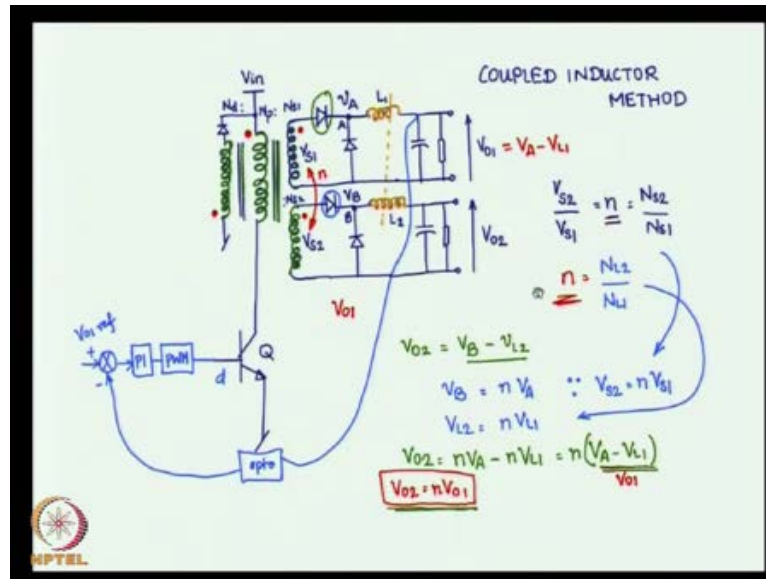 COUPLED INDUCTOR
METHOD
Vin
Nd: Np: Ns1
VA L1
A
VS1
n
V01 = VA - VL1
:Ns2 VB
B L2
VS2
V02
V01
VS2/VS1 = n = NS2/NS1
n = NL2/NL1
V02 = VB - VL2
VB = nVA ∵ VS2 = nVS1
VL2 = nVL1
V02 = nVA - nVL1 = n(VA - VL1)
V01
V02 = nV01
V01 ref
+
-
PI
PWM
d
Q
opto
NPTEL